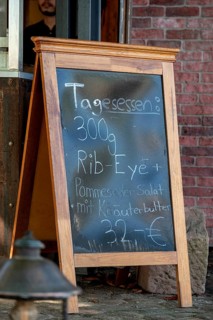 Tagesessen:
300g
Rib-Eye +
Pommes oder Salat
mit Kräuterbutter
32,-€